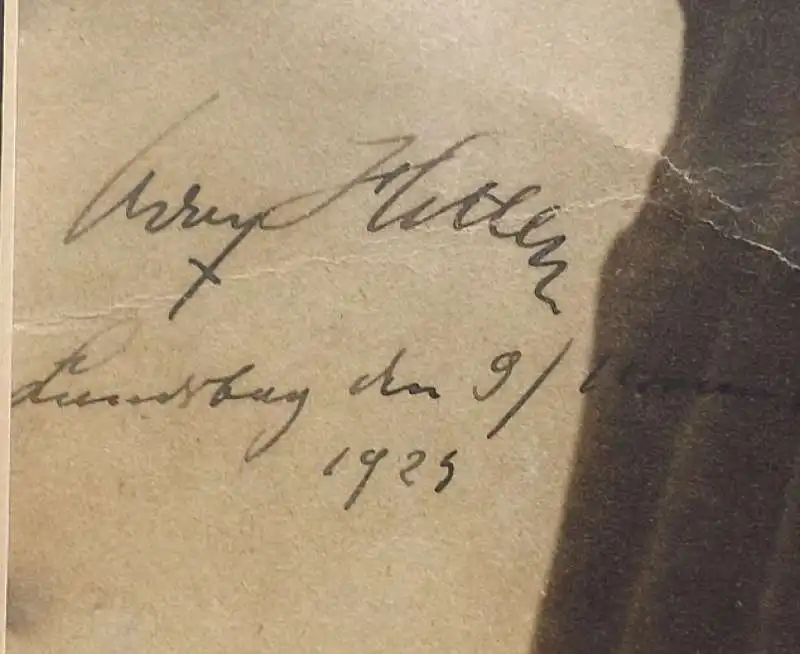 Adolf Hitler
Landsberg den 9/
1924